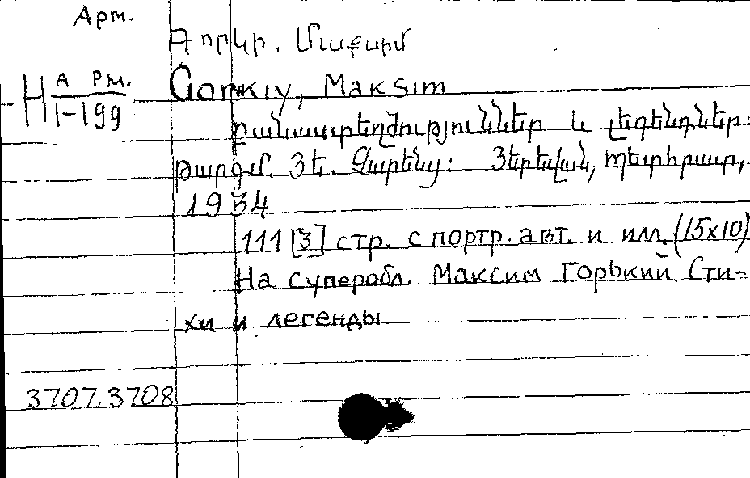 Арм.
Գորկի. Մաքսիմ
Н А Рм.
I-199
Gorkiy, Maksim
բանաստեղծություններ և լեգենդներ:
թարգմ. Յե. Չարենց: Յերեվան, պետհրատ,
1934
111 [3] стр. с портр. авт. и илл. (15х10)
На суперобл. Максим Горький Сти-
хи и легенды
3707.3708